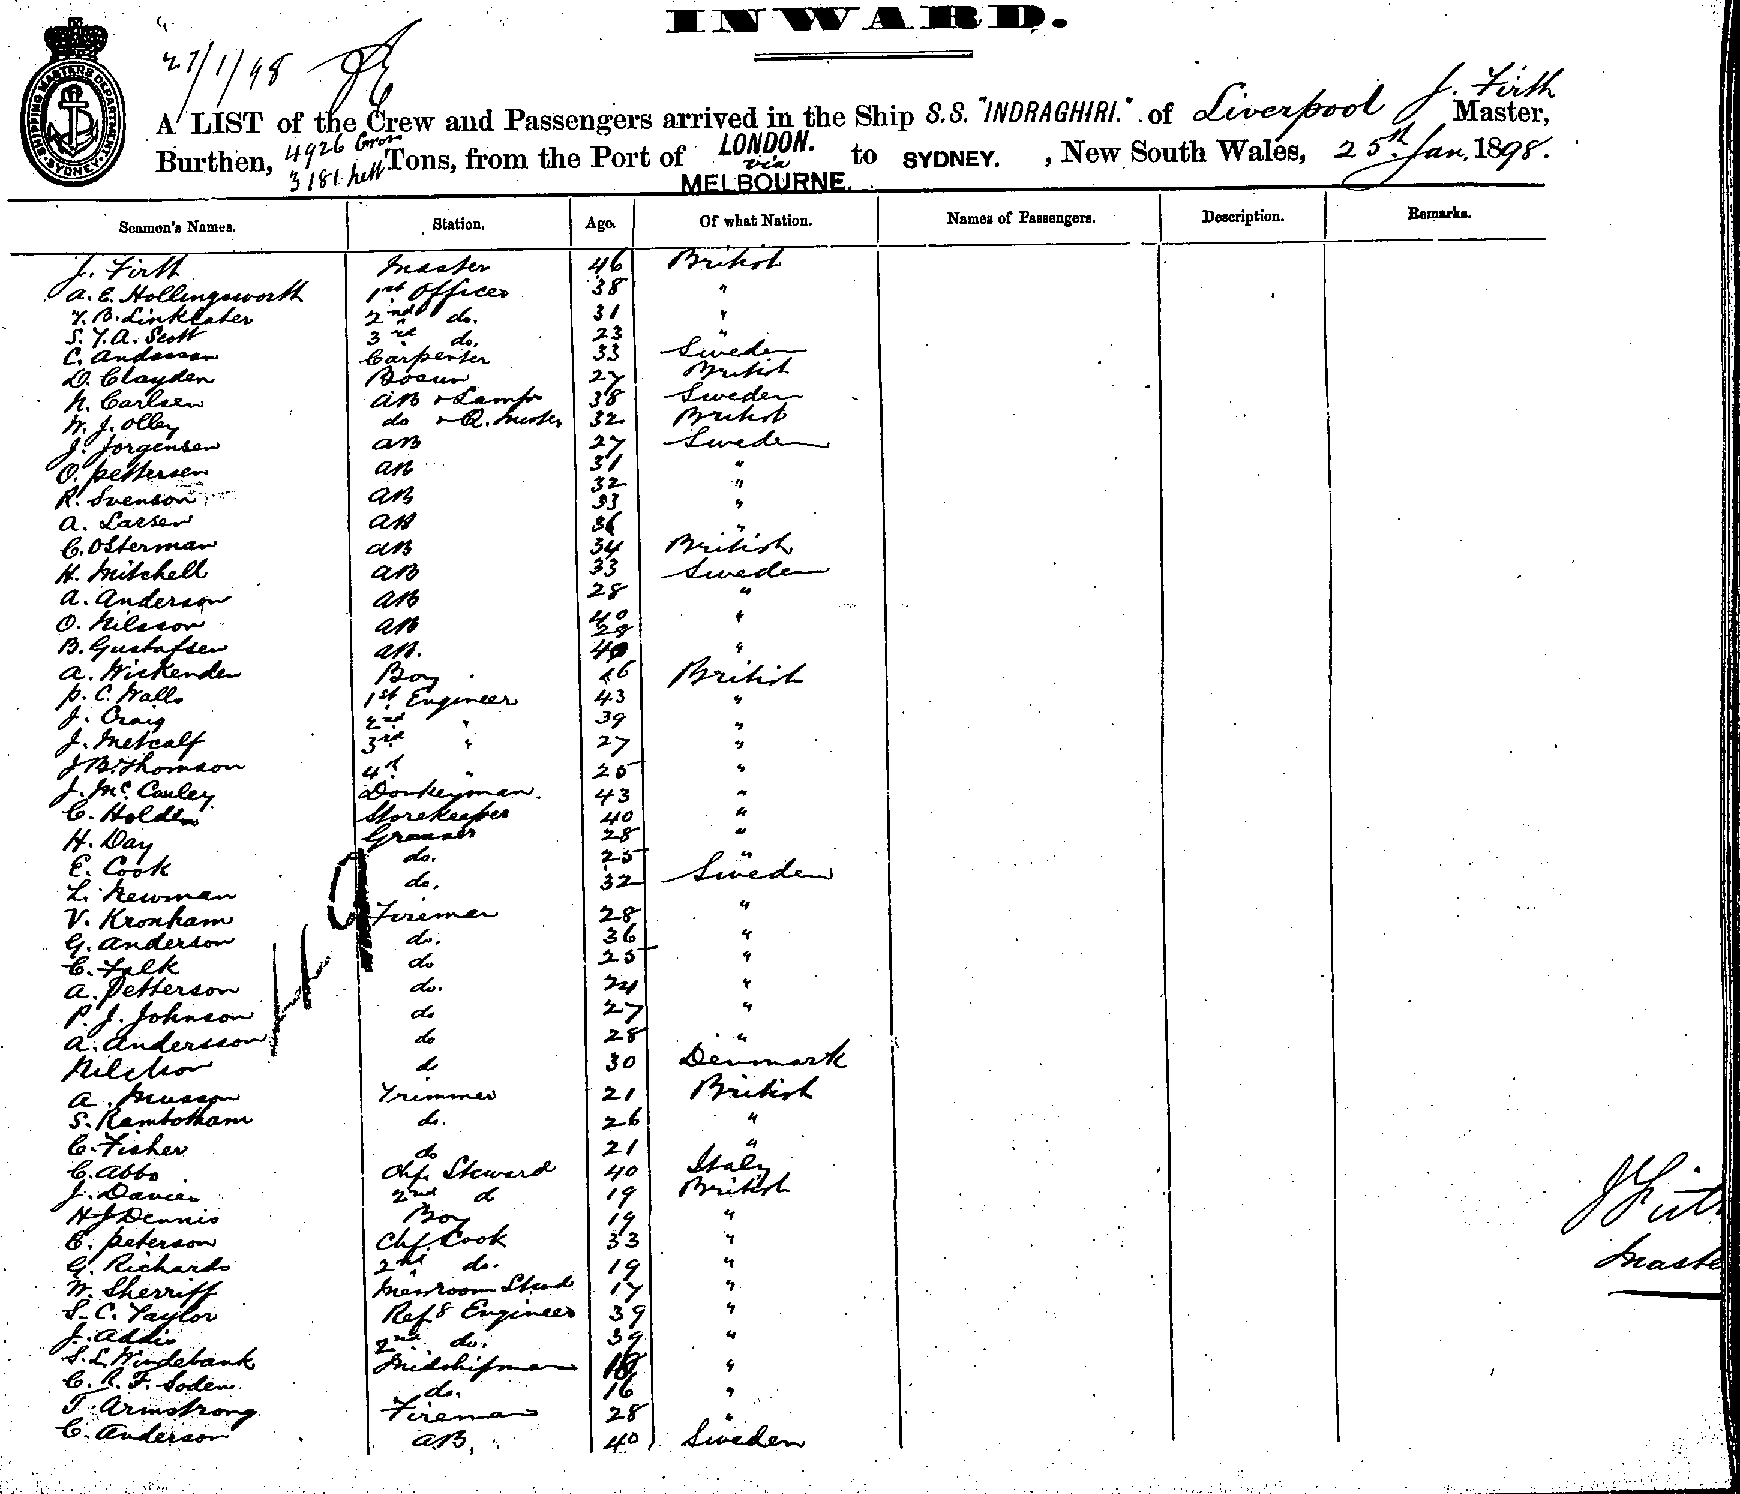 INWARD.
27/1/98
SHIPPING MASTERS DEPARTMENT SYDNEY
A LIST of the Crew and Passengers arrived in the Ship S.S. "INDRAGHIRI." of Liverpool J. Firth Master,
Burthen, 4926 Gross 3181 nett Tons, from the Port of LONDON. via MELBOURNE. to SYDNEY. , New South Wales, 25th Jan. 1898.
Seamen's Names. Station. Age. Of what Nation. Names of Passengers. Description. Remarks.
J. Firth Master 46 British
A. E. Hollingsworth 1st Officer 38 "
T. B. Linklater 2nd do. 31 "
S. T. A. Scott 3rd do. 23 "
C. Anderson Carpenter 33 Sweden
D. Clayden Bosun 27 British
N. Carlsen AB & Lamps 38 Sweden
W. J. Olley do & Q. Master 32 British
J. Jorgensen AB 27 Sweden
O. Pettersen AB 31 "
R. Svenson AB 32 "
A. Larsen AB 33 "
C. Osterman AB 36 "
H. Mitchell AB 34 British
A. Anderson AB 33 Sweden
O. Nilsson AB 28 "
B. Gustafsen AB. 40 "
A. Wickenden Boy 16 British
P. C. Walls 1st Engineer 43 "
J. Craig 2nd " 39 "
J. Metcalf 3rd " 27 "
J B. Thomson 4th " 25 "
J. McCauley Donkeyman. 43 "
C. Holden Storekeeper 40 "
H. Day Greaser 28 "
E. Cook do. 25 "
L. Newman do. 32 Sweden
V. Kronham Fireman 28 "
G. Anderson do. 36 "
C. Falk do 25 "
A. Petterson do. 24 "
P. J. Johnson do 27 "
A. Andersson do 28 "
Nilsson do 30 Denmark
A. Musson Trimmer 21 British
S. Rambotham do. 26 "
C. Fisher do 21 "
C. Abbo Chf. Steward 40 Italy
J. Davies 2nd d 19 British
H J Dennis Boy 19 "
C. Peterson Chf. Cook 33 "
G. Richards 2nd do. 19 "
W. Sherriff Messroom Stwd 17 "
S. C. Taylor Refg Engineer 39 "
J. Addis 2nd do. 39 "
S. L. Windebank Midshipman 18 "
C. R. F. Soden do. 16 "
T. Armstrong Fireman 28 "
C. Anderson AB. 40 Sweden
49
J Firth
Master